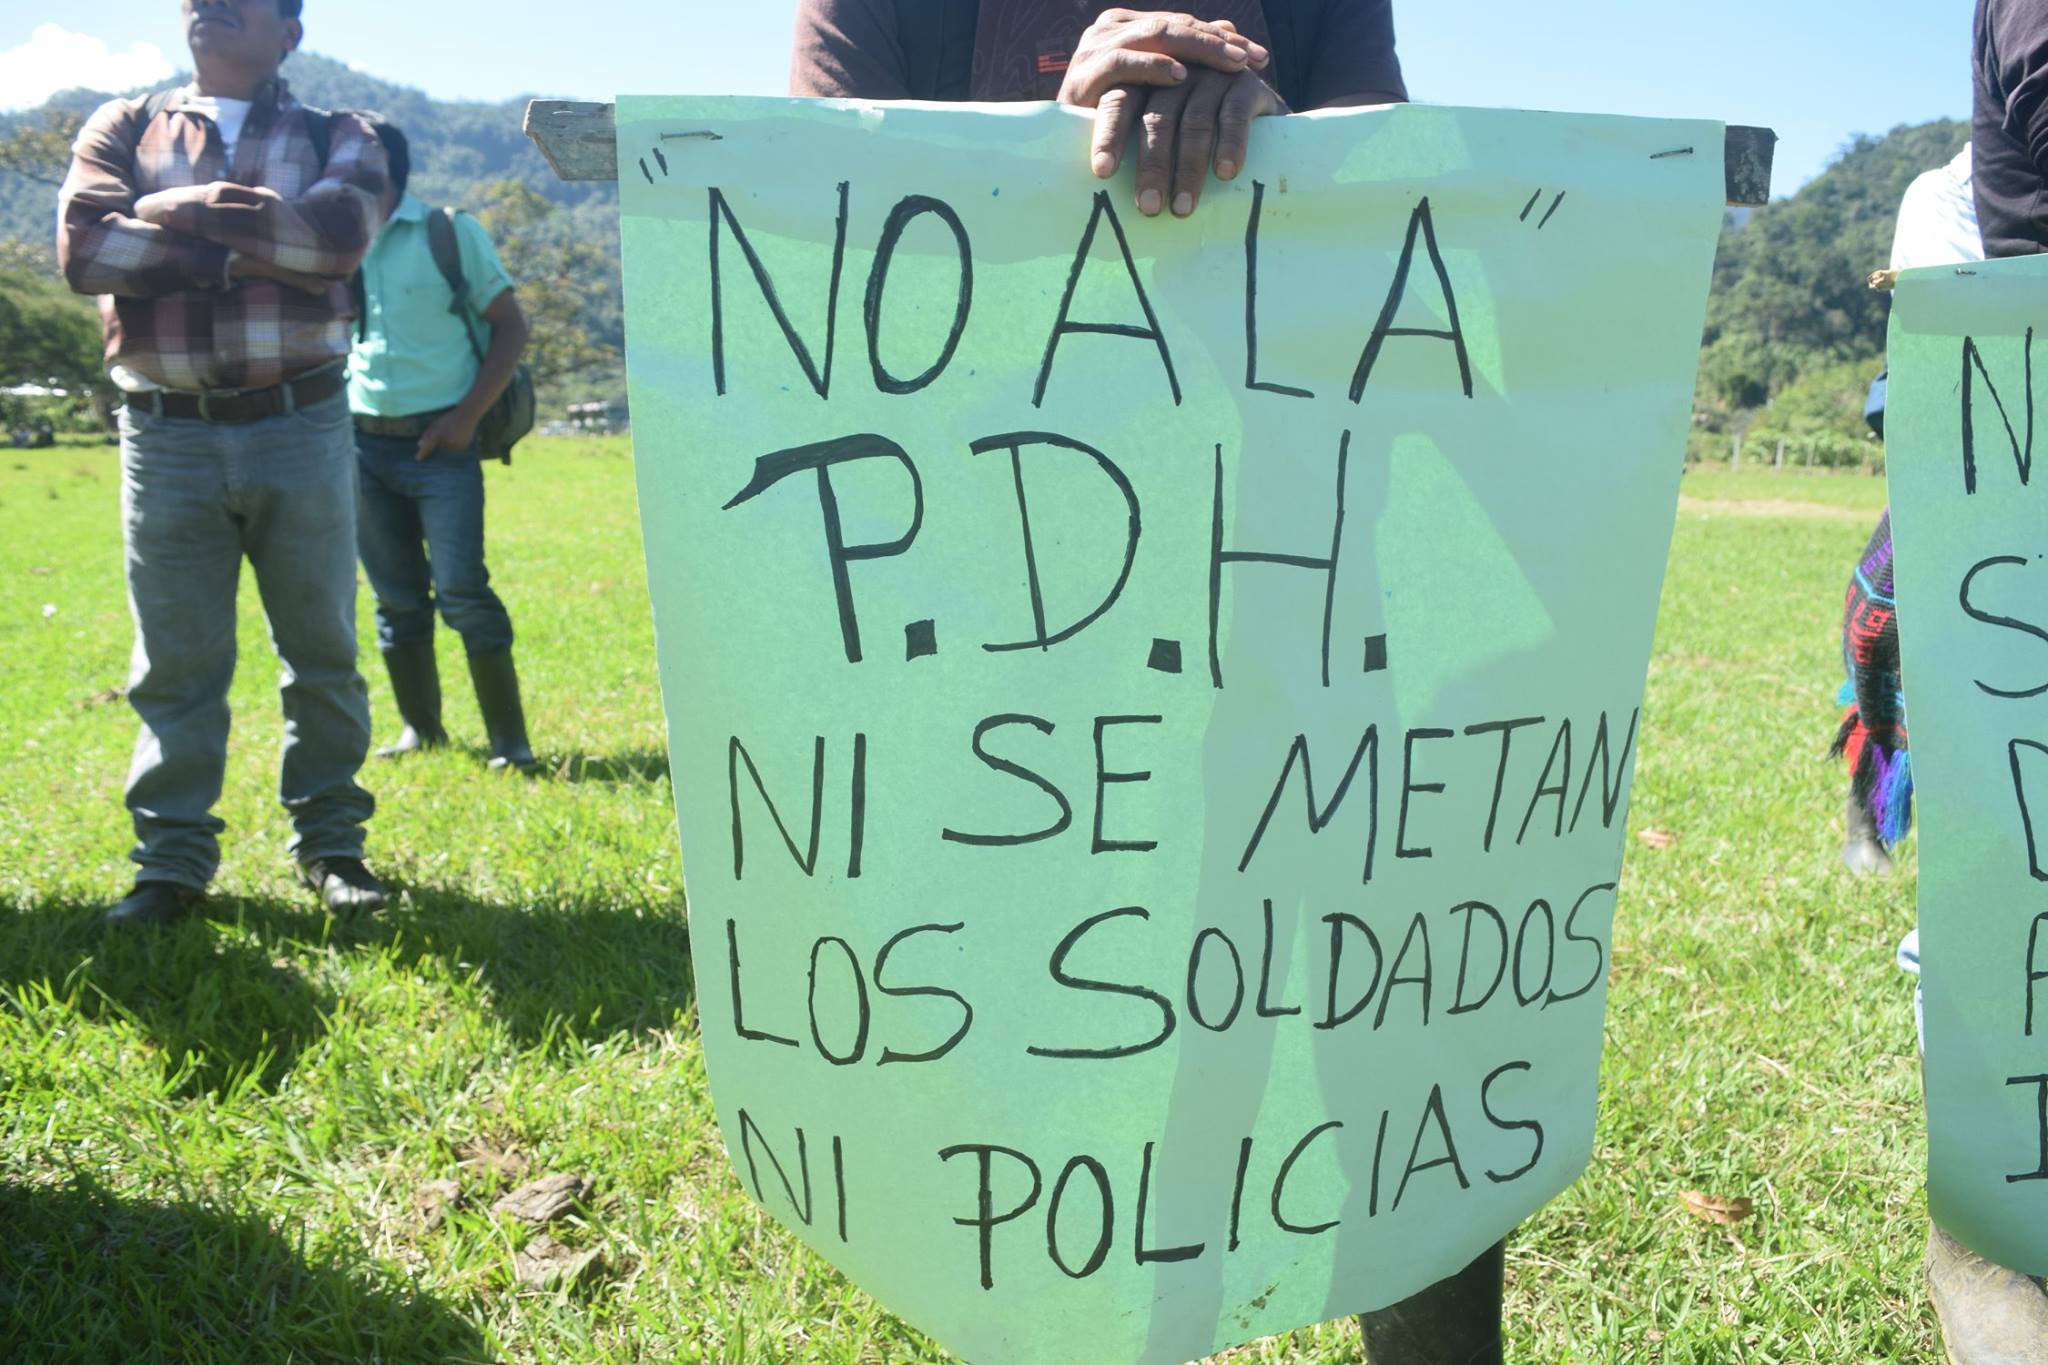 "NO A LA"
P.D.H.
NI SE METAN
LOS SOLDADOS
NI POLICIAS